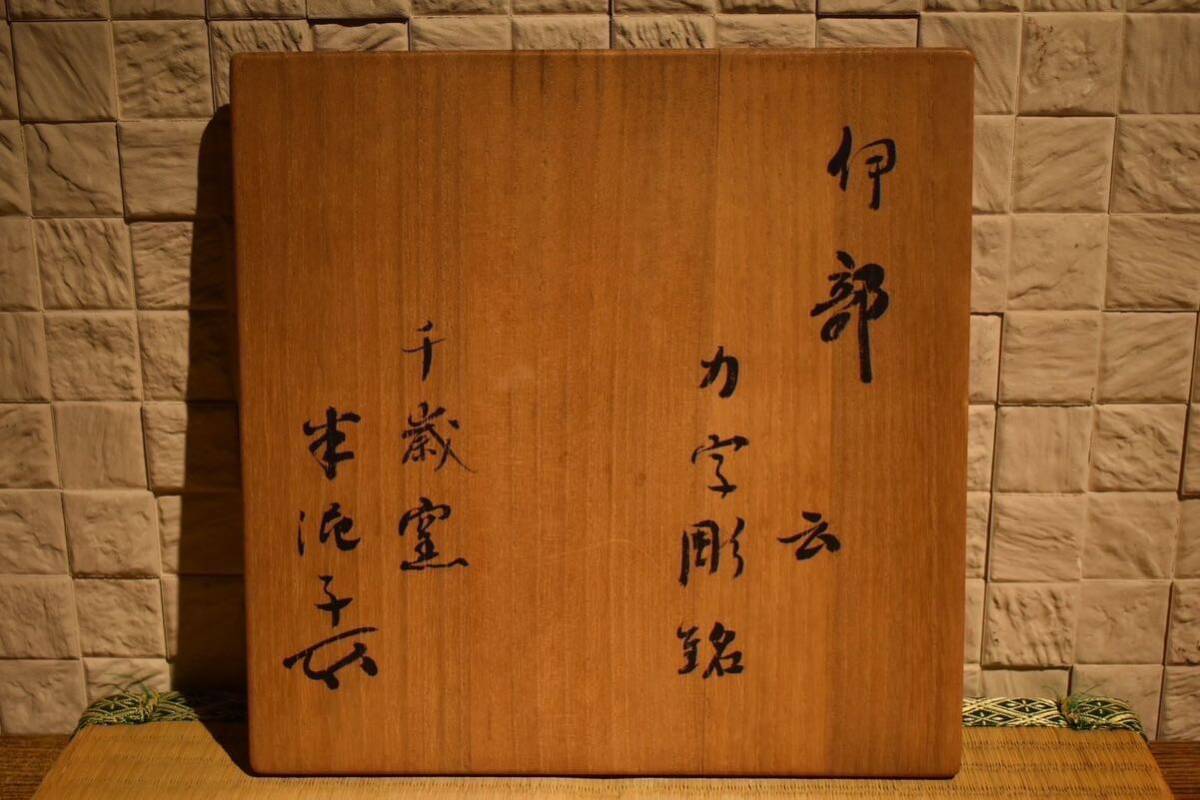 伊部
云
力字彫銘
千歳窯
半泥子